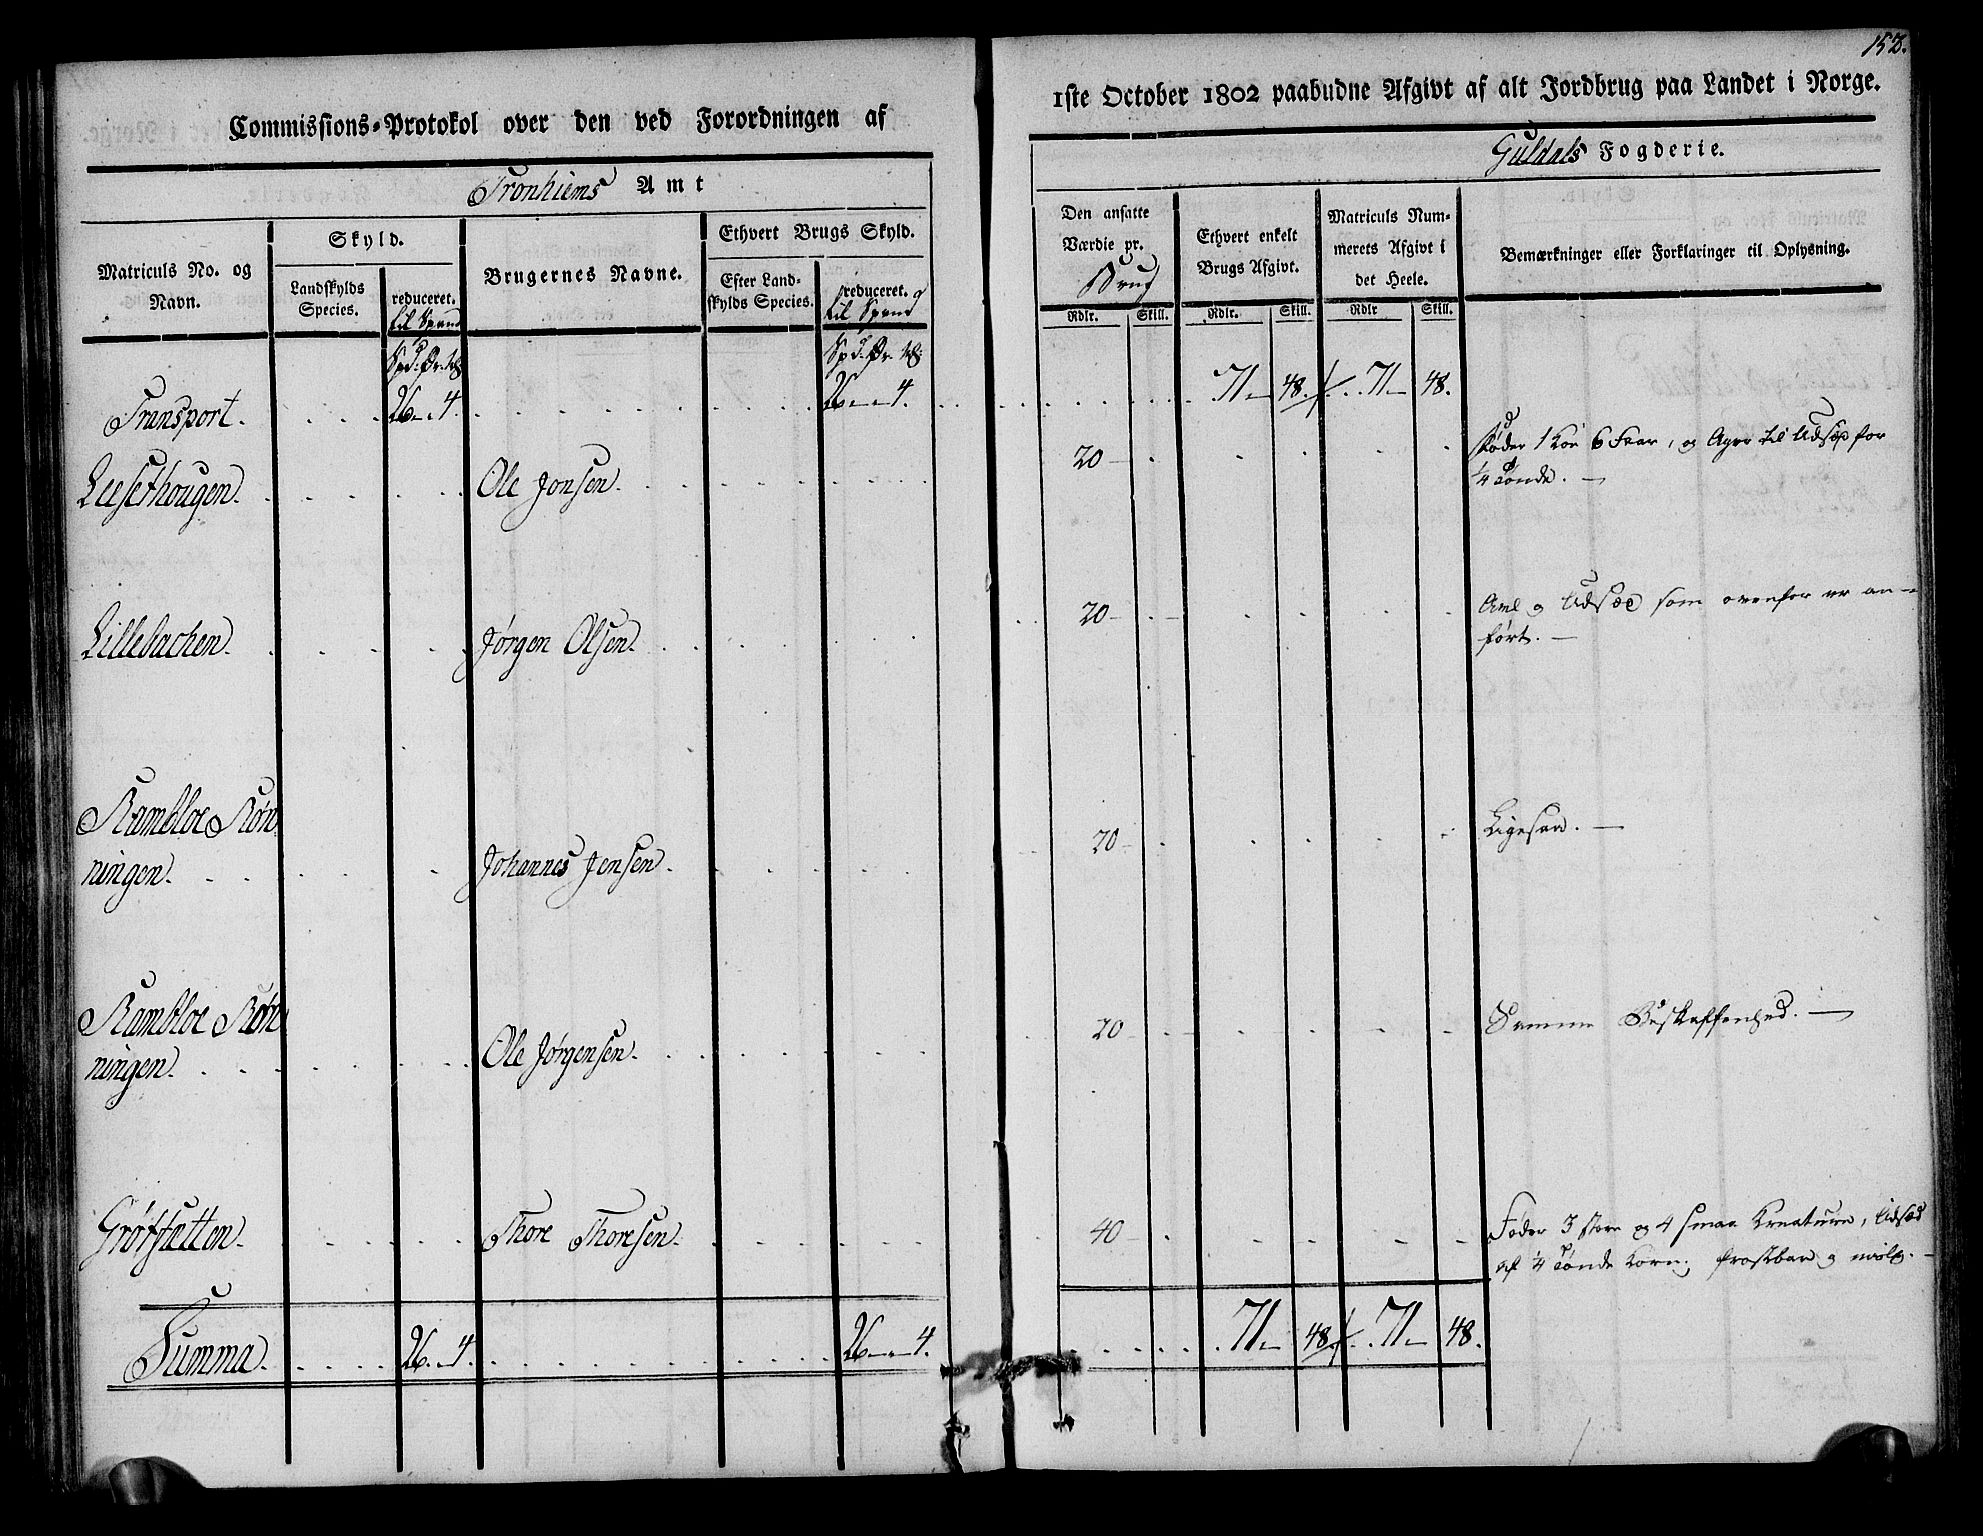 152.
Commissions-Protokol over den ved Forordningen af
1ste October 1802 paabudne Afgivt af alt Jordbrug paa Landet i Norge.
Tronhiems Amt
Guldals Fogderie.
Matriculs No. og Navn.
Skyld.
Landskylds Species.
reduceret. til Spand
Brugernes Navne.
Ethvert Brugs Skyld.
Efter Landskylds Species.
reduceret. til Spand
Den ansatte Værdie pr. Brug
Ethvert enkelt Brugs Afgivt.
Matriculs Nummerets Afgivt i det Heele.
Bemærkninger eller Forklaringer til Oplysning.
Rdlr. Skill. Rdlr. Skill. Rdlr Skill.
Transport. 26 - 4. 26 - 4. 71 - 48. 71 - 48.
Leesethougen. Ole Jonsen. 20 - føder 1 Koe 6 Faar, og Ager til Udsæd for
1/4 Tønde. -
Lillebachen. Jørgen Olsen. 20 - Avl og Udsæd som ovenfor er an-
ført. -
Rambloe Røn
ningen. Johannes Jensen. 20 - Ligesaa. -
Rambloe Røn
ningen. Ole Jørgensen. 20 - Samme Beskaffenhed. -
Grøtfætten. Thore Thoresen. 40 - Føder 3 store og 4 smaa Kreature, Udsæd
af 1/4 Tønde Korn; frostbar og
Summa. 26 - 4. 26 - 4. 71 - 48. 71 - 48.